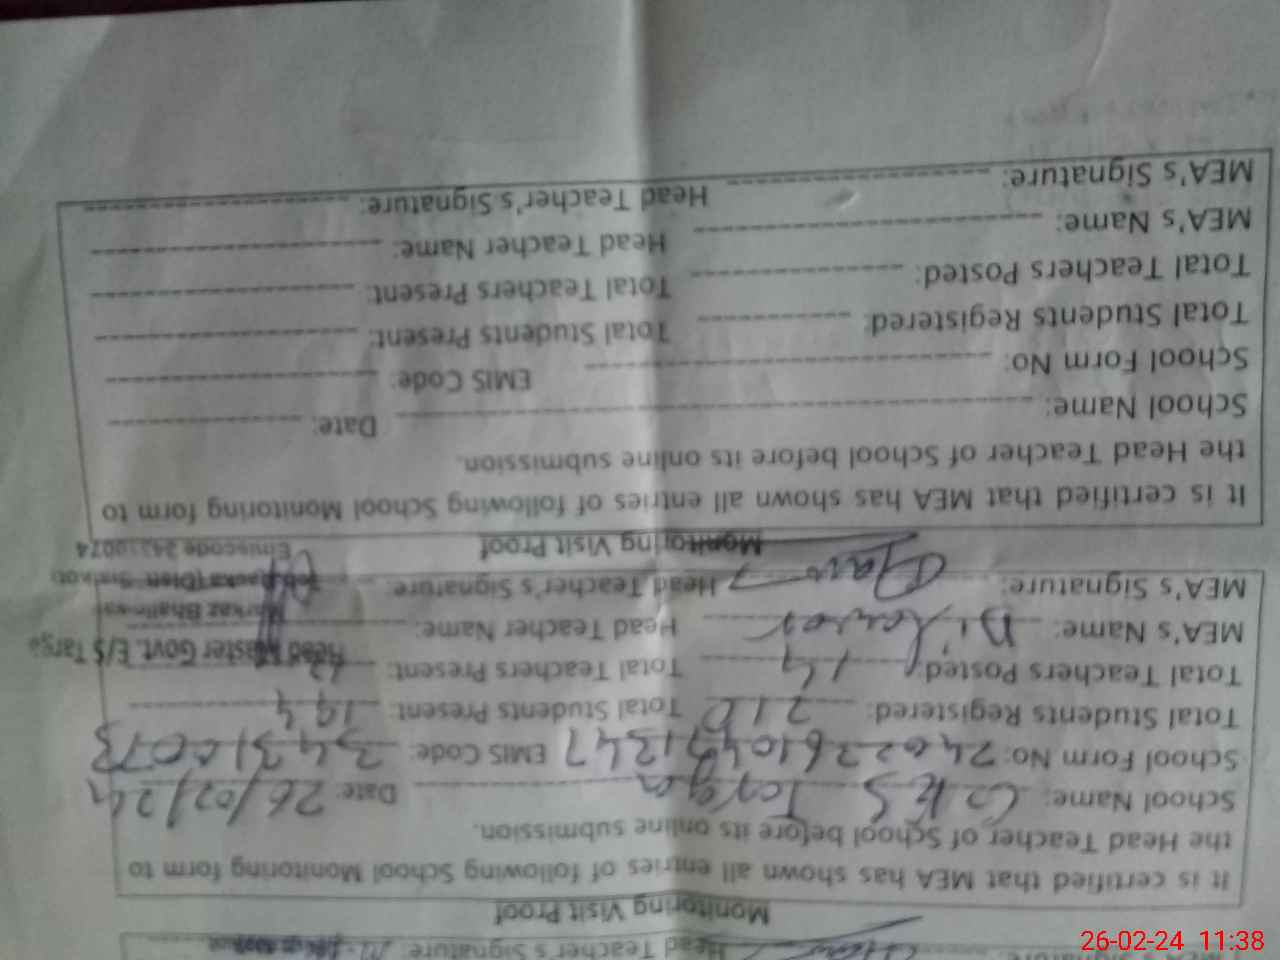 MEA's Signature: Head Teacher's Signature:
Monitoring Visit Proof
It is certified that MEA has shown all entries of following School Monitoring form to
the Head Teacher of School before its online submission.
School Name: GES Targa Date: 26/02/24
School Form No: EMIS Code: 34310073
Total Students Registered: 210 Total Students Present: 194
Total Teachers Posted: 14 Total Teachers Present:
Head Master Govt. E/S Targa
MEA's Name: Dilawar Head Teacher Name:
Markaz Bhallowali
MEA's Signature: Head Teacher's Signature:
Emiscode
Monitoring Visit Proof
It is certified that MEA has shown all entries of following School Monitoring form to
the Head Teacher of School before its online submission.
School Name: Date:
School Form No: EMIS Code:
Total Students Registered: Total Students Present:
Total Teachers Posted: Total Teachers Present:
MEA's Name: Head Teacher Name:
MEA's Signature: Head Teacher's Signature:
26-02-24 11:38